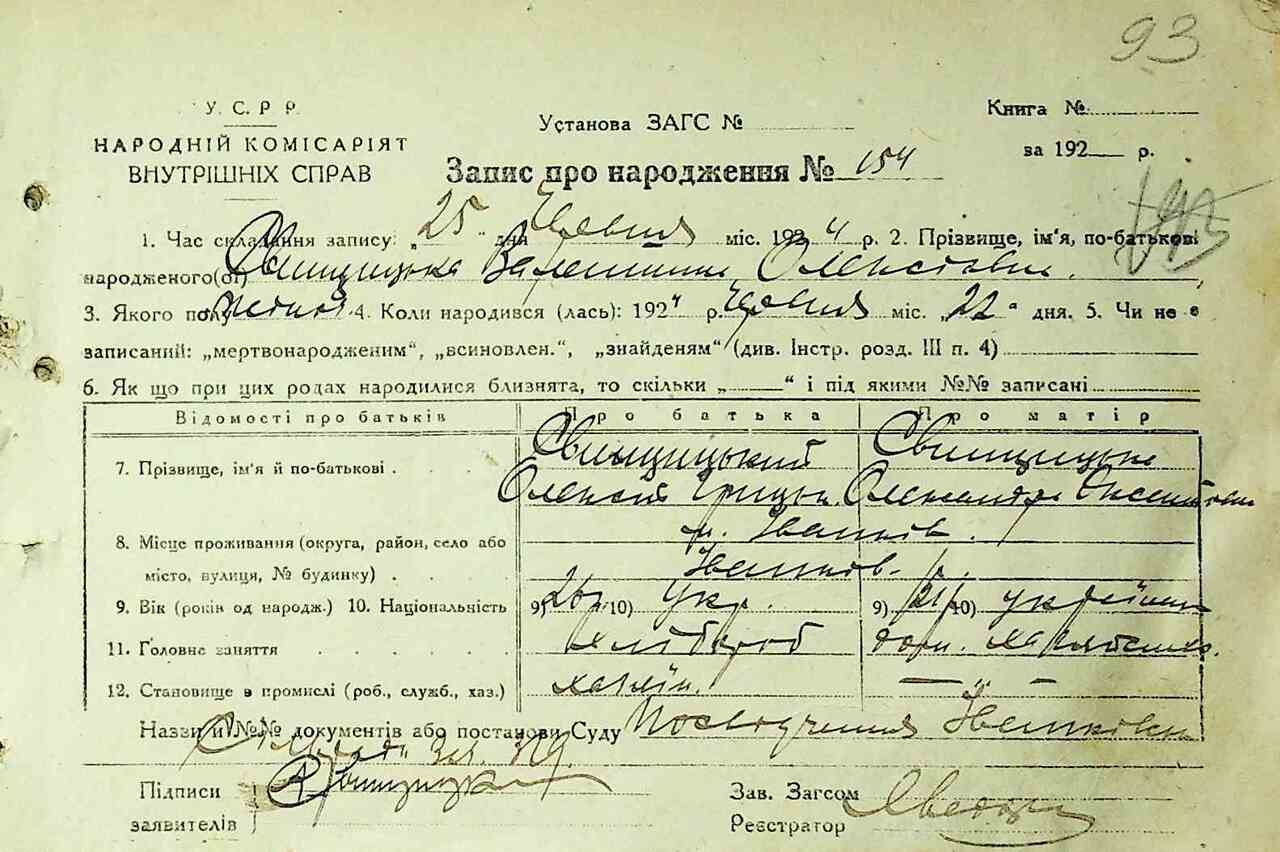 93
У. С. Р. Р.
НАРОДНІЙ КОМІСАРІЯТ
ВНУТРІШНІХ СПРАВ
Установа ЗАГС №
Книга №
за 192 р.
Запис про народження № 154
1. Час складання запису: „25" дня Червня міс. 1924 р. 2. Прізвище, ім'я, по-батькові
народженого(ої) Свинцицька Валентина Олексіївна.
3. Якого полу жіноч. 4. Коли народився (лась): 1924 р. Червня міс. „22" дня. 5. Чи не є
записаний: „мертвонародженим", „всиновлен.", „знайденям" (див. Інстр. розд. III п. 4)
6. Як що при цих родах народилися близнята, то скільки „ " і під якими №№ записані
Відомості про батьків Про батька Про матір
7. Прізвище, ім'я й по-батькові . Свинцицький Свинцицька
Олексій Олександра
8. Місце проживання (округа, район, село або м. Іванків.
місто, вулиця, № будинку) . Іванків. р.
9. Вік (років од народж.) 10. Національність 9) 26 р. 10) Укр. 9) 21 р. 10) українка
11. Головне заняття хлібороб дом. хазяйство.
12. Становище в промислі (роб., служб., хаз.) хазяїн. — „ —
Назви й №№ документів або постанови Суду Посвідчення Іванківськ
Сільради за № 329.
Підписи
заявителів
Зав. Загсом
Реєстратор